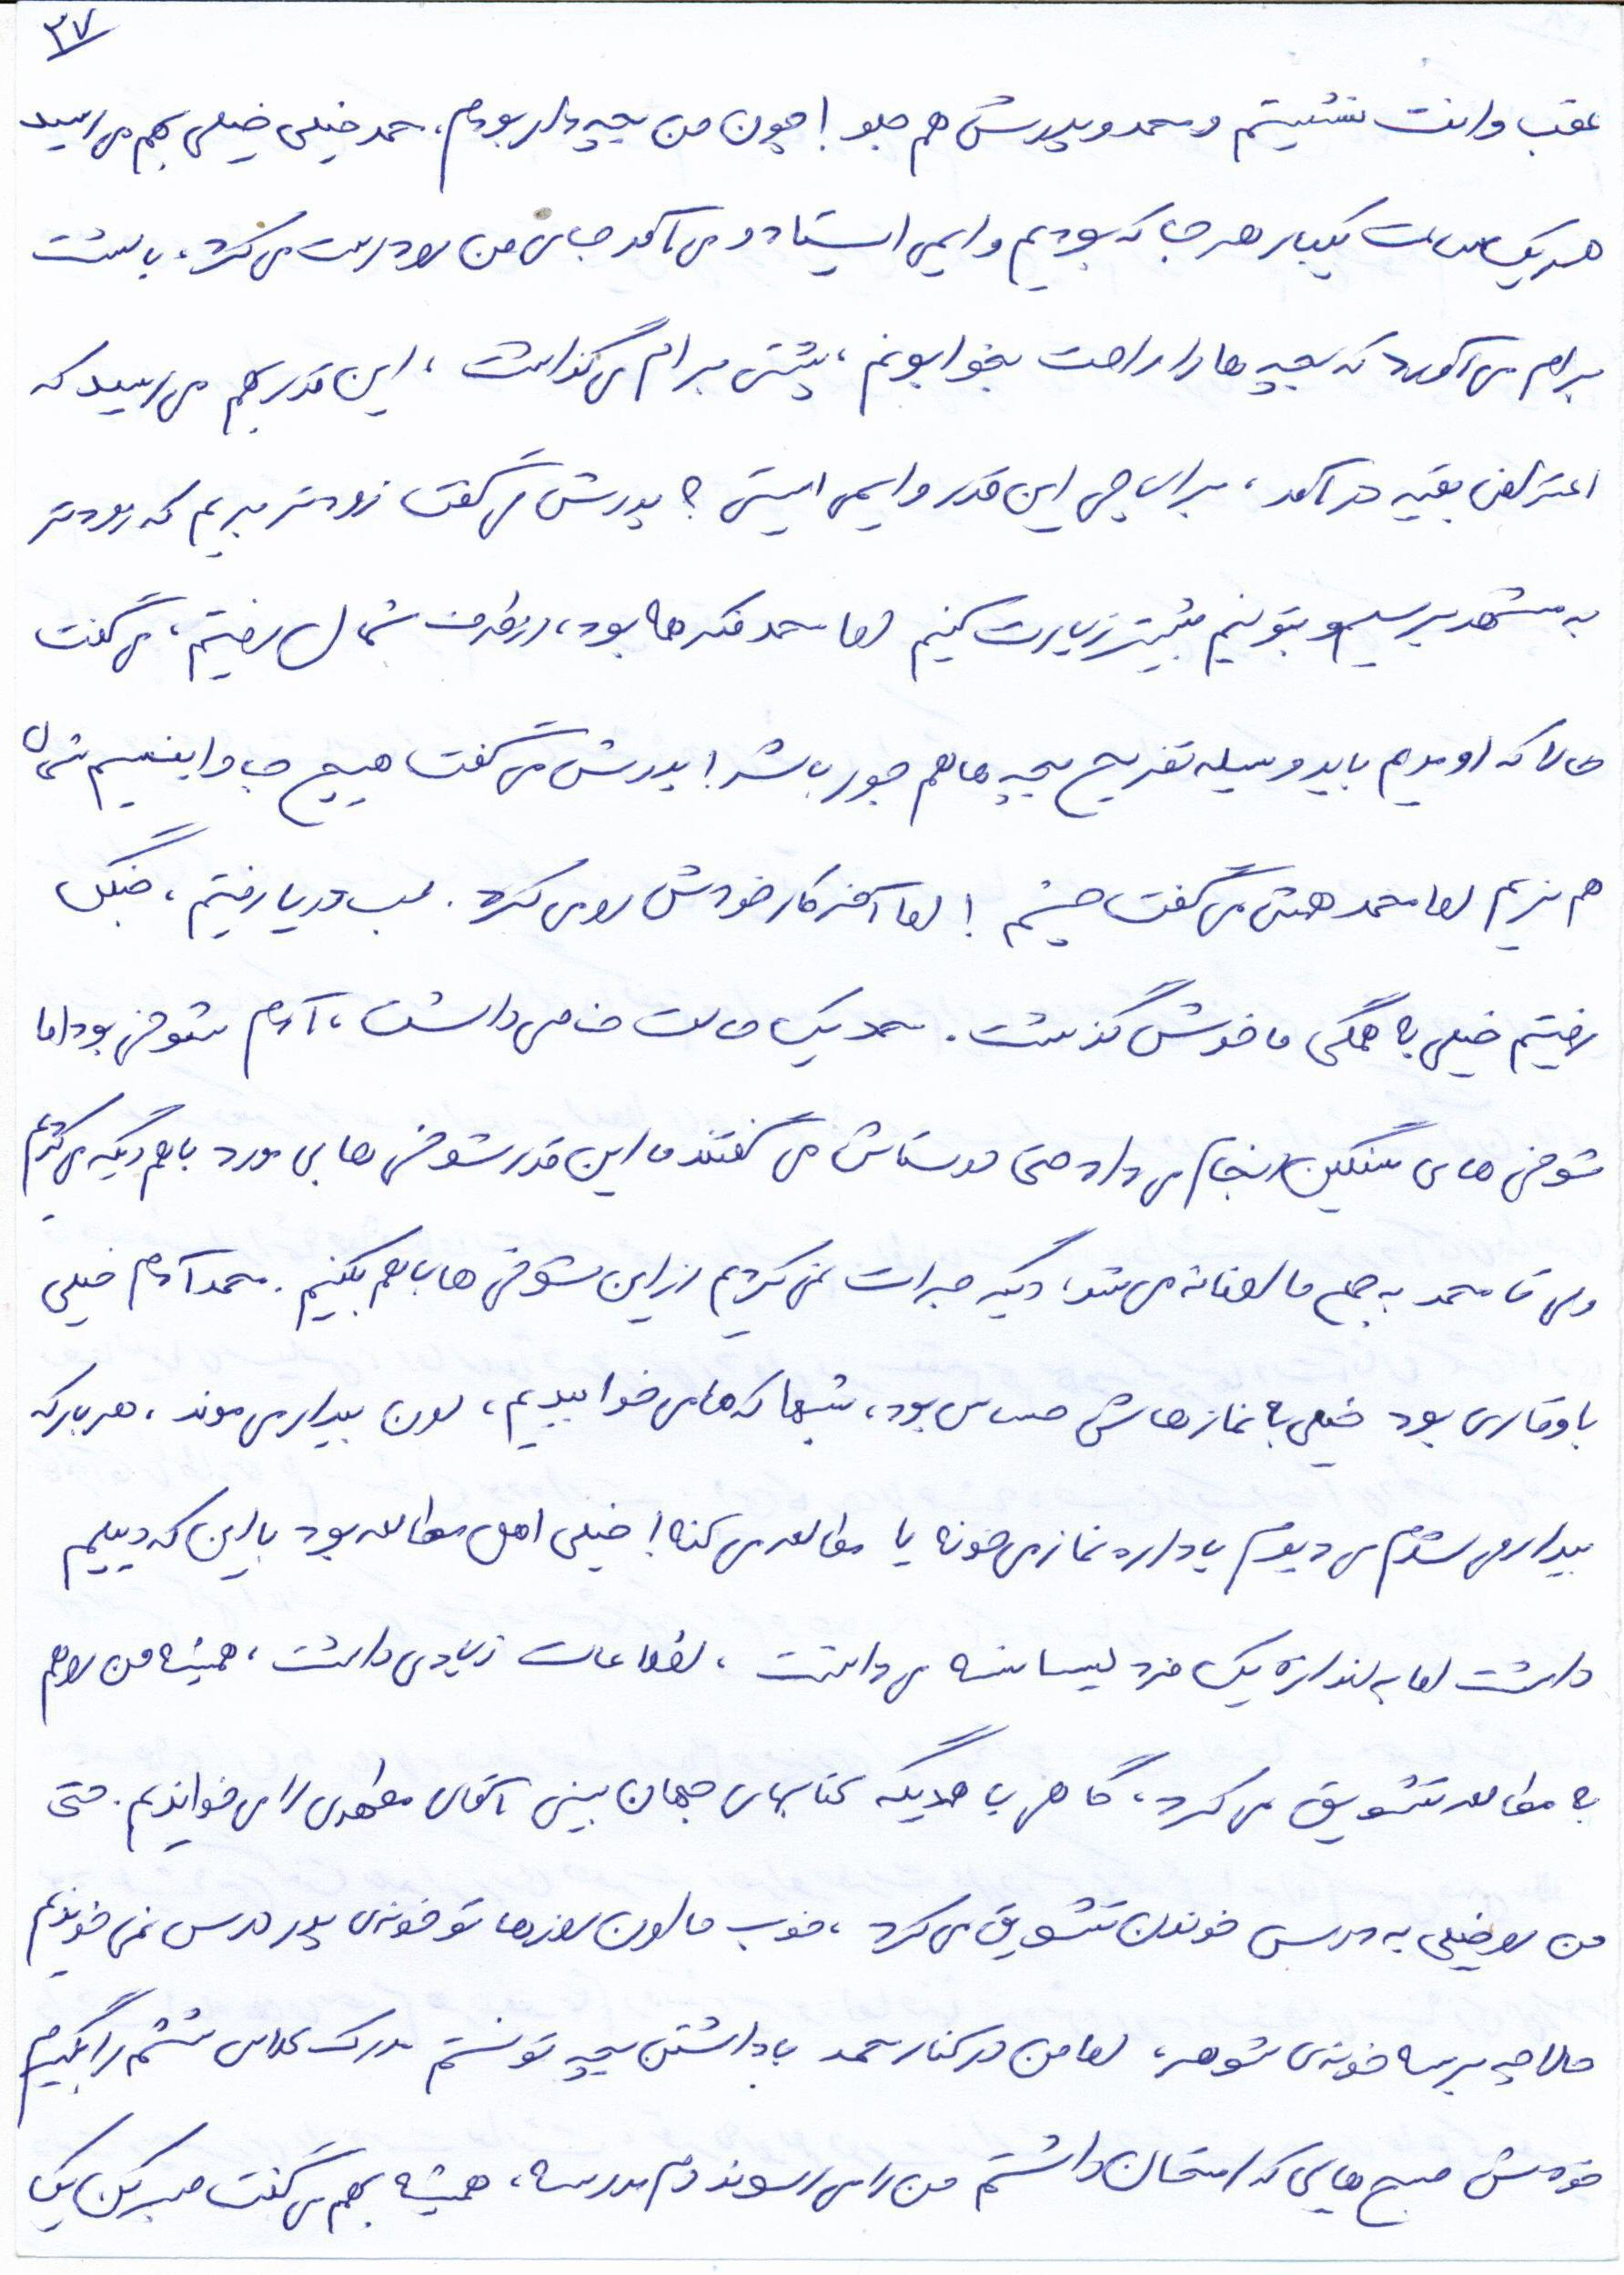 ۳۷
عقب وانت نشستیم و محمد و پدرش هم جلو! چون من بچه دار بودم، محمد خیلی خیلی بهم می رسید
هر یک ساعت یکبار هر جا که بودیم وایمی ایستاد و می آمد جای من رو درست می کرد، بالشت
برام می آورد که بچه ها را راحت بخوابونم، پشتی برام می گذاشت، این قدر بهم می رسید که
اعتراض بقیه در آمد، برای چی این قدر وایمی ایستی؟ پدرش می گفت زودتر بریم که زودتر
به مشهد برسیم و بتونیم بیشتر زیارت کنیم اما محمد فکر ما بود، از طرف شمال رفتیم، می گفت
حالا که اومدیم باید وسیله تفریح بچه ها هم جور باشد! پدرش می گفت هیچ جا واینسیم شمال
هم نریم اما محمد همش می گفت چشم! اما آخر کار خودش رو می کرد. لب دریا رفتیم، جنگل
رفتیم خیلی به همگی ما خوش گذشت. محمد یک حالت خاصی داشت، آدم شوخی بود اما
شوخی های سنگین انجام می داد حتی دوستاش می گفتند ما این قدر شوخی های بی مورد با هم دیگه می کردیم
ولی تا محمد به جمع ما اضافه می شد، دیگه جرات نمی کردیم از این شوخی ها با هم بکنیم. محمد آدم خیلی
باوقاری بود خیلی به نمازهاش حساس بود، شبها که ما می خوابیدیم، اون بیدار می موند، هر بار که
بیدار می شدم می دیدم یا داره نماز می خونه یا مطالعه می کنه! خیلی اهل مطالعه بود با این که دیپلم
داشت اما به اندازه یک فرد لیسانسه می دانست، اطلاعات زیادی داشت، همیشه من رو هم
به مطالعه تشویق می کرد، گاهی با همدیگه کتابهای جهان بینی آقای مطهری را می خواندیم. حتی
من رو خیلی به درس خوندن تشویق می کرد، خوب ما اون روزها تو خونه ی پدر درس نمی خوندیم
حالا چه برسه خونه ی شوهر، اما من در کنار محمد با داشتن بچه تونستم مدرک کلاس ششم را بگیرم
خودش صبح هایی که امتحان داشتم من را می رسوند دم مدرسه، همیشه بهم می گفت صبر کن یک